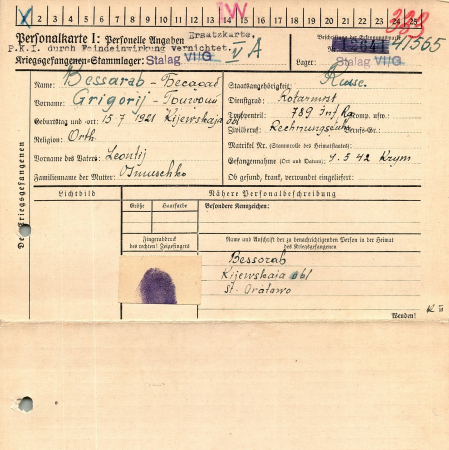 1 2 3 4 5 6 7 8 9 10 11 12 13 14 15 16 17 18 19 20 21 22 23 24 25
W
Ersatzkarte.
Personalkarte I: Personelle Angaben
P.K.I. durch Feindeinwirkung vernichtet.
Kriegsgefangenen-Stammlager: Stalag VI/G V A
Beschriftung der Erkennungsmarke
12841 41565
Lager: Stalag VI/G
Des Kriegsgefangenen
Name: Bessarab - Бесараб
Vorname: Grigorij - Григорий
Geburtstag und -ort: 15.7.1921 Kijewskaja obl
Religion: Orth.
Vorname des Vaters: Leontij
Familienname der Mutter:
Staatsangehörigkeit: Russe.
Dienstgrad: Rotarmist
Truppenteil: 789 Inf. Rg. Komp. usw.:
Zivilberuf: Berufs-Gr.:
Matrikel Nr. (Stammrolle des Heimatstaates):
Gefangennahme (Ort und Datum): 4.5.42 Krym
Ob gesund, krank, verwundet eingeliefert:
Lichtbild
Nähere Personalbeschreibung
Größe
Haarfarbe
Besondere Kennzeichen:
Fingerabdruck
des rechten! Zeigefingers
Name und Anschrift der zu benachrichtigenden Person in der Heimat
des Kriegsgefangenen
Bessorab
Kijewskaia obl
St. Oratowo
Wenden!